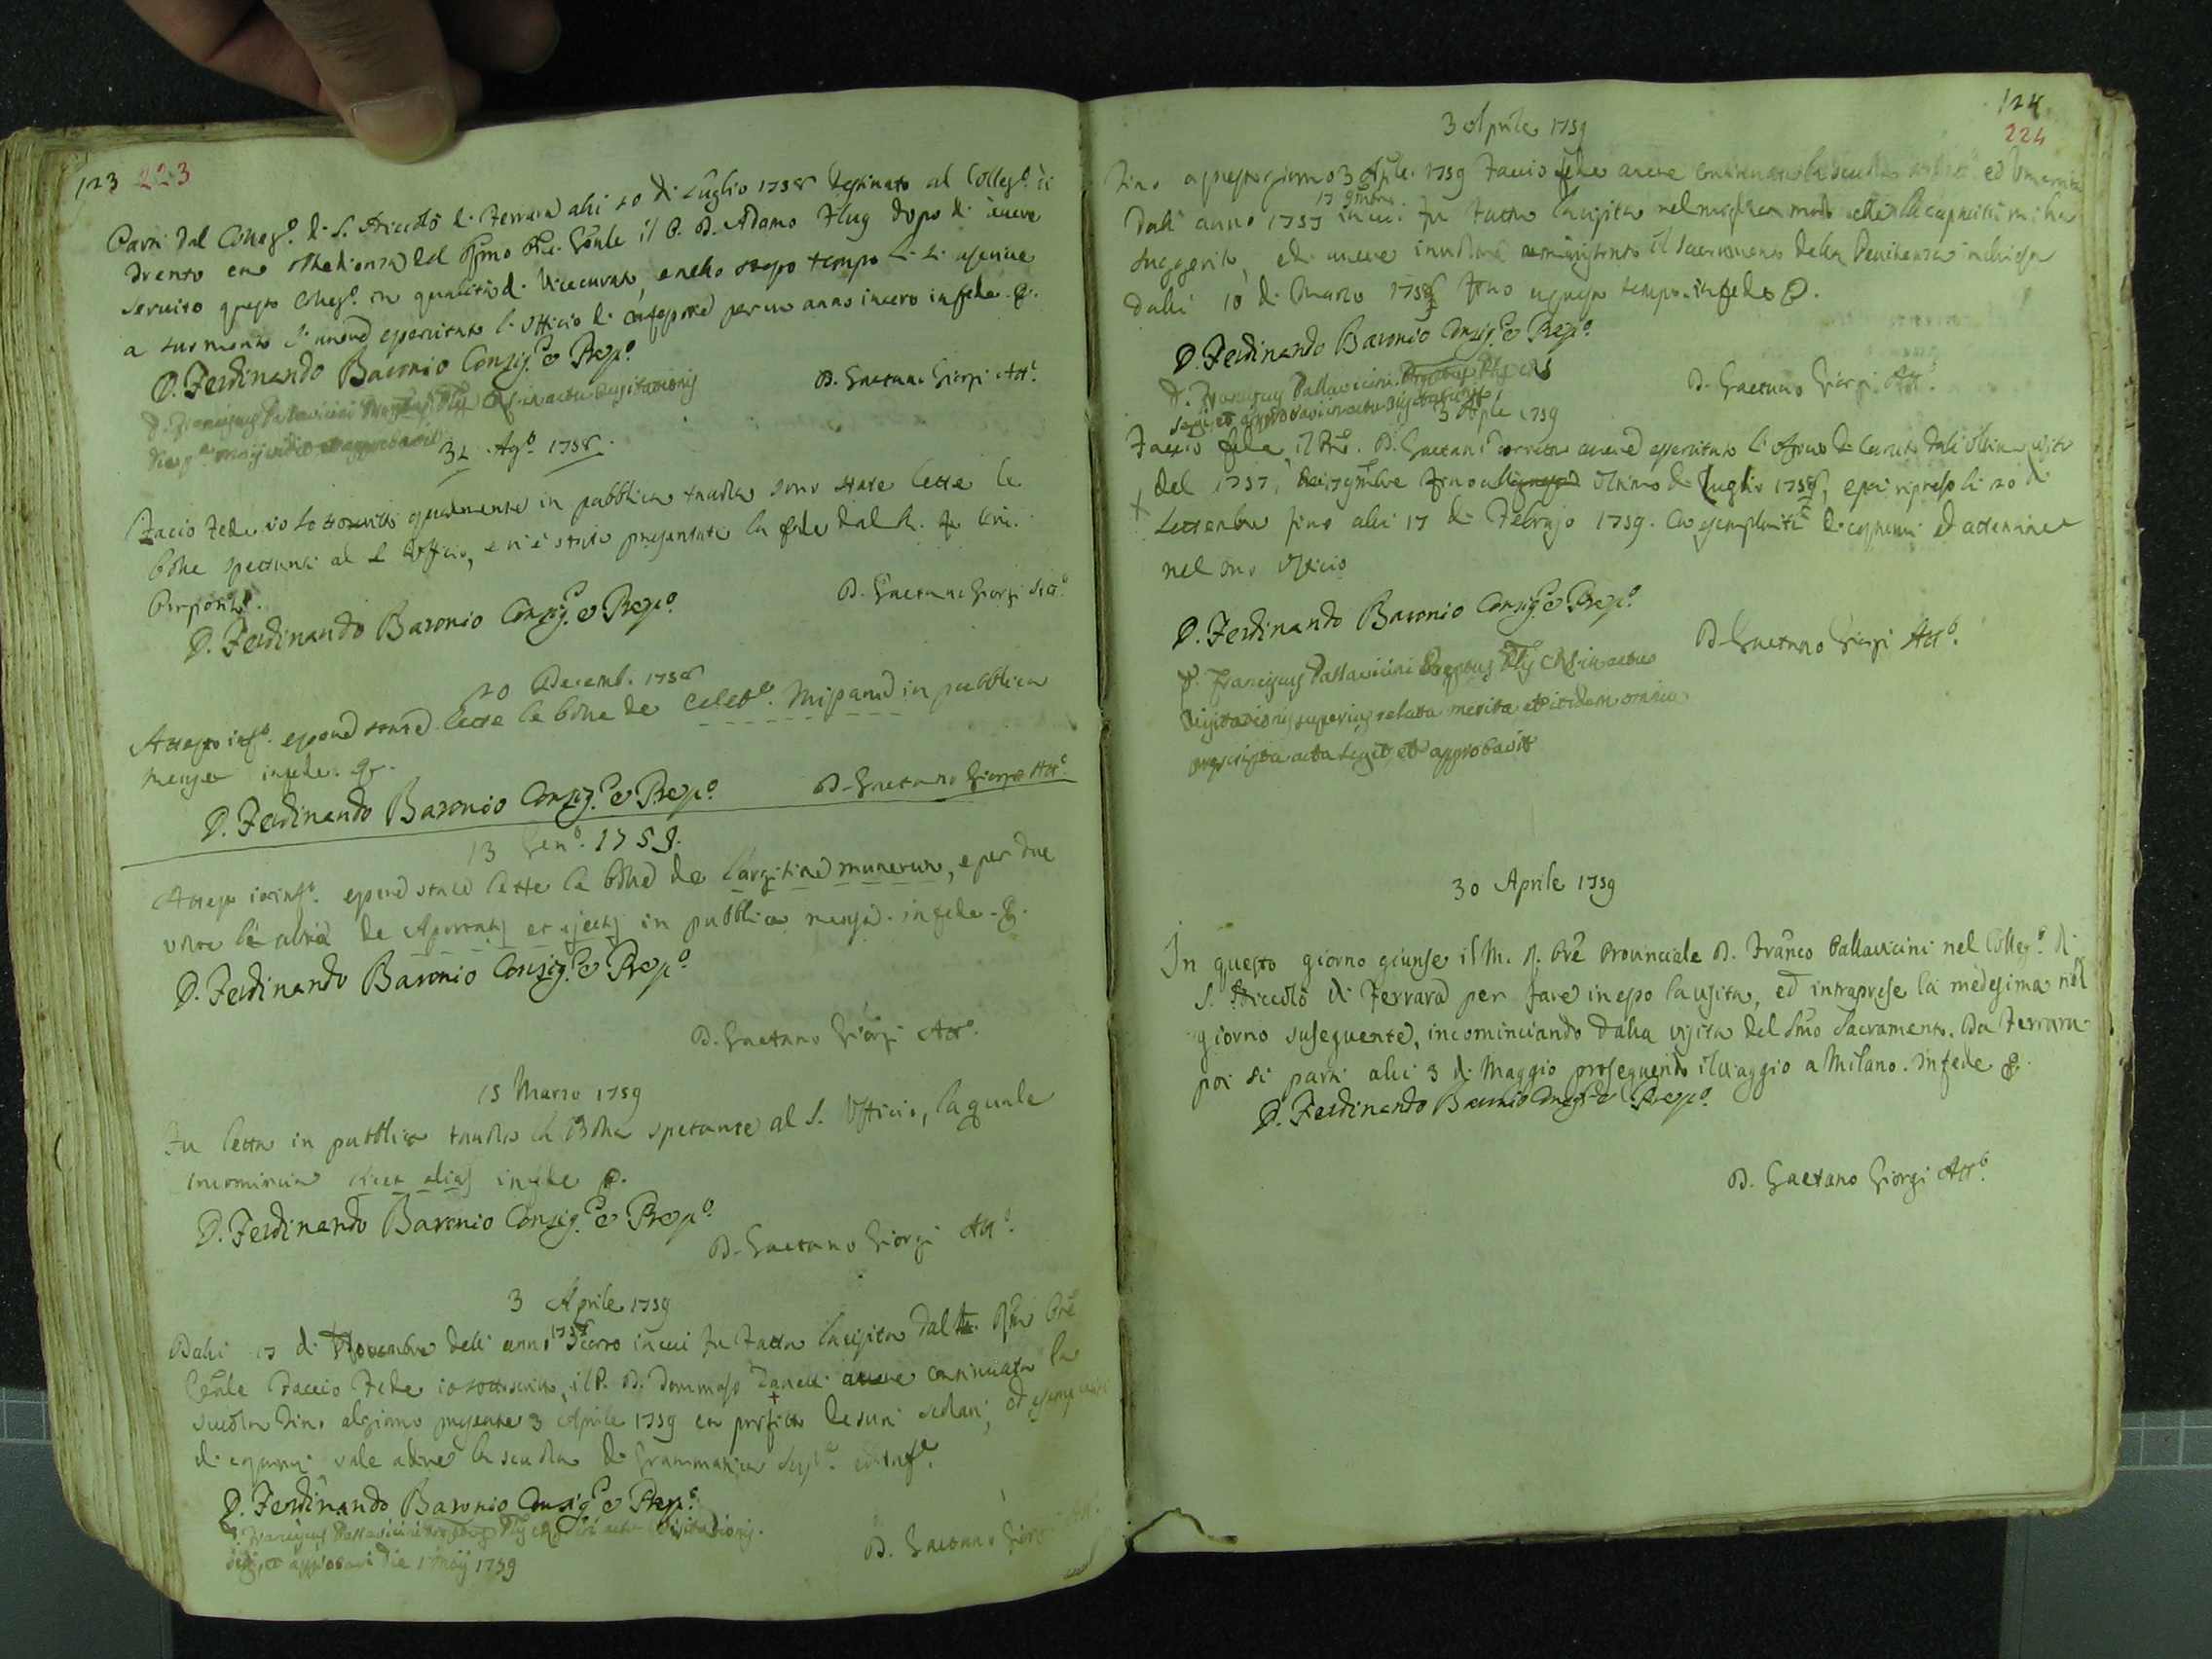 123 223
Partì dal Colleg.º di S. Niccolò di Ferrara alli 20 di Luglio 1758 destinato al Colleg.º di
Trento con obbedienza del Rmo Pre. Gñle il P. D. Adamo Flug dopo di avere
servito questo Colleg.º in qualità di Vicecurato, e nello stesso tempo
esercitato l'Officio di per un anno intero in fede &.
D. Ferdinando Baronio Consig.e e Prep.º
D. Gaetano Giorgi Att.º
D. Franciscus Pallavicini Prep̃tus Plis CRS in actu visitationis
die p.a maij vidit et approbavit
31 Ag.º 1758.
Faccio fede io sottoscritto qualmente in pubblica tavola sono state lette le
bolle spettanti al S. Officio, e vi è stata presentata la fede dal

D. Ferdinando Baronio Consig.e e Prep.º
D. Gaetano Giorgi Att.º
20 Decemb. 1758
Attesto inf.º essere state lette le bolle de Celeb.e Missarum in pubblica
mensa in fede. &.
D. Ferdinando Baronio Consig.e e Prep.º
D. Gaetano Giorgi Att.º
13 Gen.º 1759.
Attesto io inf.º essere state lette le bolle de largitione munerum, e per due
volte la altra de Apostatis et ejectis in pubblica mensa. in fede &.
D. Ferdinando Baronio Consig.e e Prep.º
D. Gaetano Giorgi Att.º
15 Marzo 1759
Fu letta in pubblica tavola la Bolla spetante al S. Officio, la quale
incomincia Licet alias in fede &.
D. Ferdinando Baronio Consig.e e Prep.º
D. Gaetano Giorgi Att.º
3 Aprile 1759
Dalli 17 di Novembre dell'anno 1757 in cui fu fatta la visita dal Rmo Pre
Gñle faccio fede io sottoscritto, il P. D. Tommaso Zanelli avere continuata la
scuola sino al giorno presente 3 Aprile 1759 con profitto de suoi scolari, ed
di costumi vale a dire la scuola di Grammatica Sup.e ed Inf.e
D. Ferdinando Baronio Consig.e e Prep.º
D. Franciscus Pallavicini Prep̃tus Plis CRS in actu Visitationis.
legi, et approbavi die 1 Maij 1759
D. Gaetano Giorgi Att.
124
224
3 Aprile 1759
Sino a questo giorno 3 Aple. 1759 faccio fede avere continuato la scuola ed Umanità
17 9mbre
dall'anno 1757 in cui fu fatta la visita nel miglior modo che la capacità mi ha
suggerito, ed avere amministrato il Sacramento della Penitenza in chiesa
dalli 10 di Marzo 1758 sino a questo tempo. in fede &.
D. Ferdinando Baronio Consig.e e Prep.º
D. Gaetano Giorgi Att.º
D. Franciscus Pallavicini Prep̃tus Plis CRS
legi et approbavi in actu Visitationis
3 Aple 1759
Faccio fede, il P. D. Gaetano avere esercitato l'Officio di Curato dall'ultima visita
del 1757, 17 9mbre sino ultimo di Luglio 1758, e poi ripreso li 20 di
Settembre sino alli 17 di Febrajo 1759. con esemplarità di costumi ed attenzione
nel suo Officio
D. Ferdinando Baronio Consig.e e Prep.º
D. Gaetano Giorgi Att.º
D. Franciscus Pallavicini Prep̃tus Plis CRS in actu
Visitationis superius relata merita et itidem omnia
acta legit et approbavit
30 Aprile 1759
In questo giorno giunse il M. R. Prẽ Provinciale D. Franco Pallavicini nel Colleg.º di
S. Niccolò di Ferrara per fare in esso la visita, ed intraprese la medesima nel
giorno suseguente, incominciando dalla visita del Smo Sacramento. Da Ferrara
poi si partì alli 3 di Maggio proseguendo il viaggio a Milano. In fede &.
D. Ferdinando Baronio Consig.e e Prep.º
D. Gaetano Giorgi Att.º